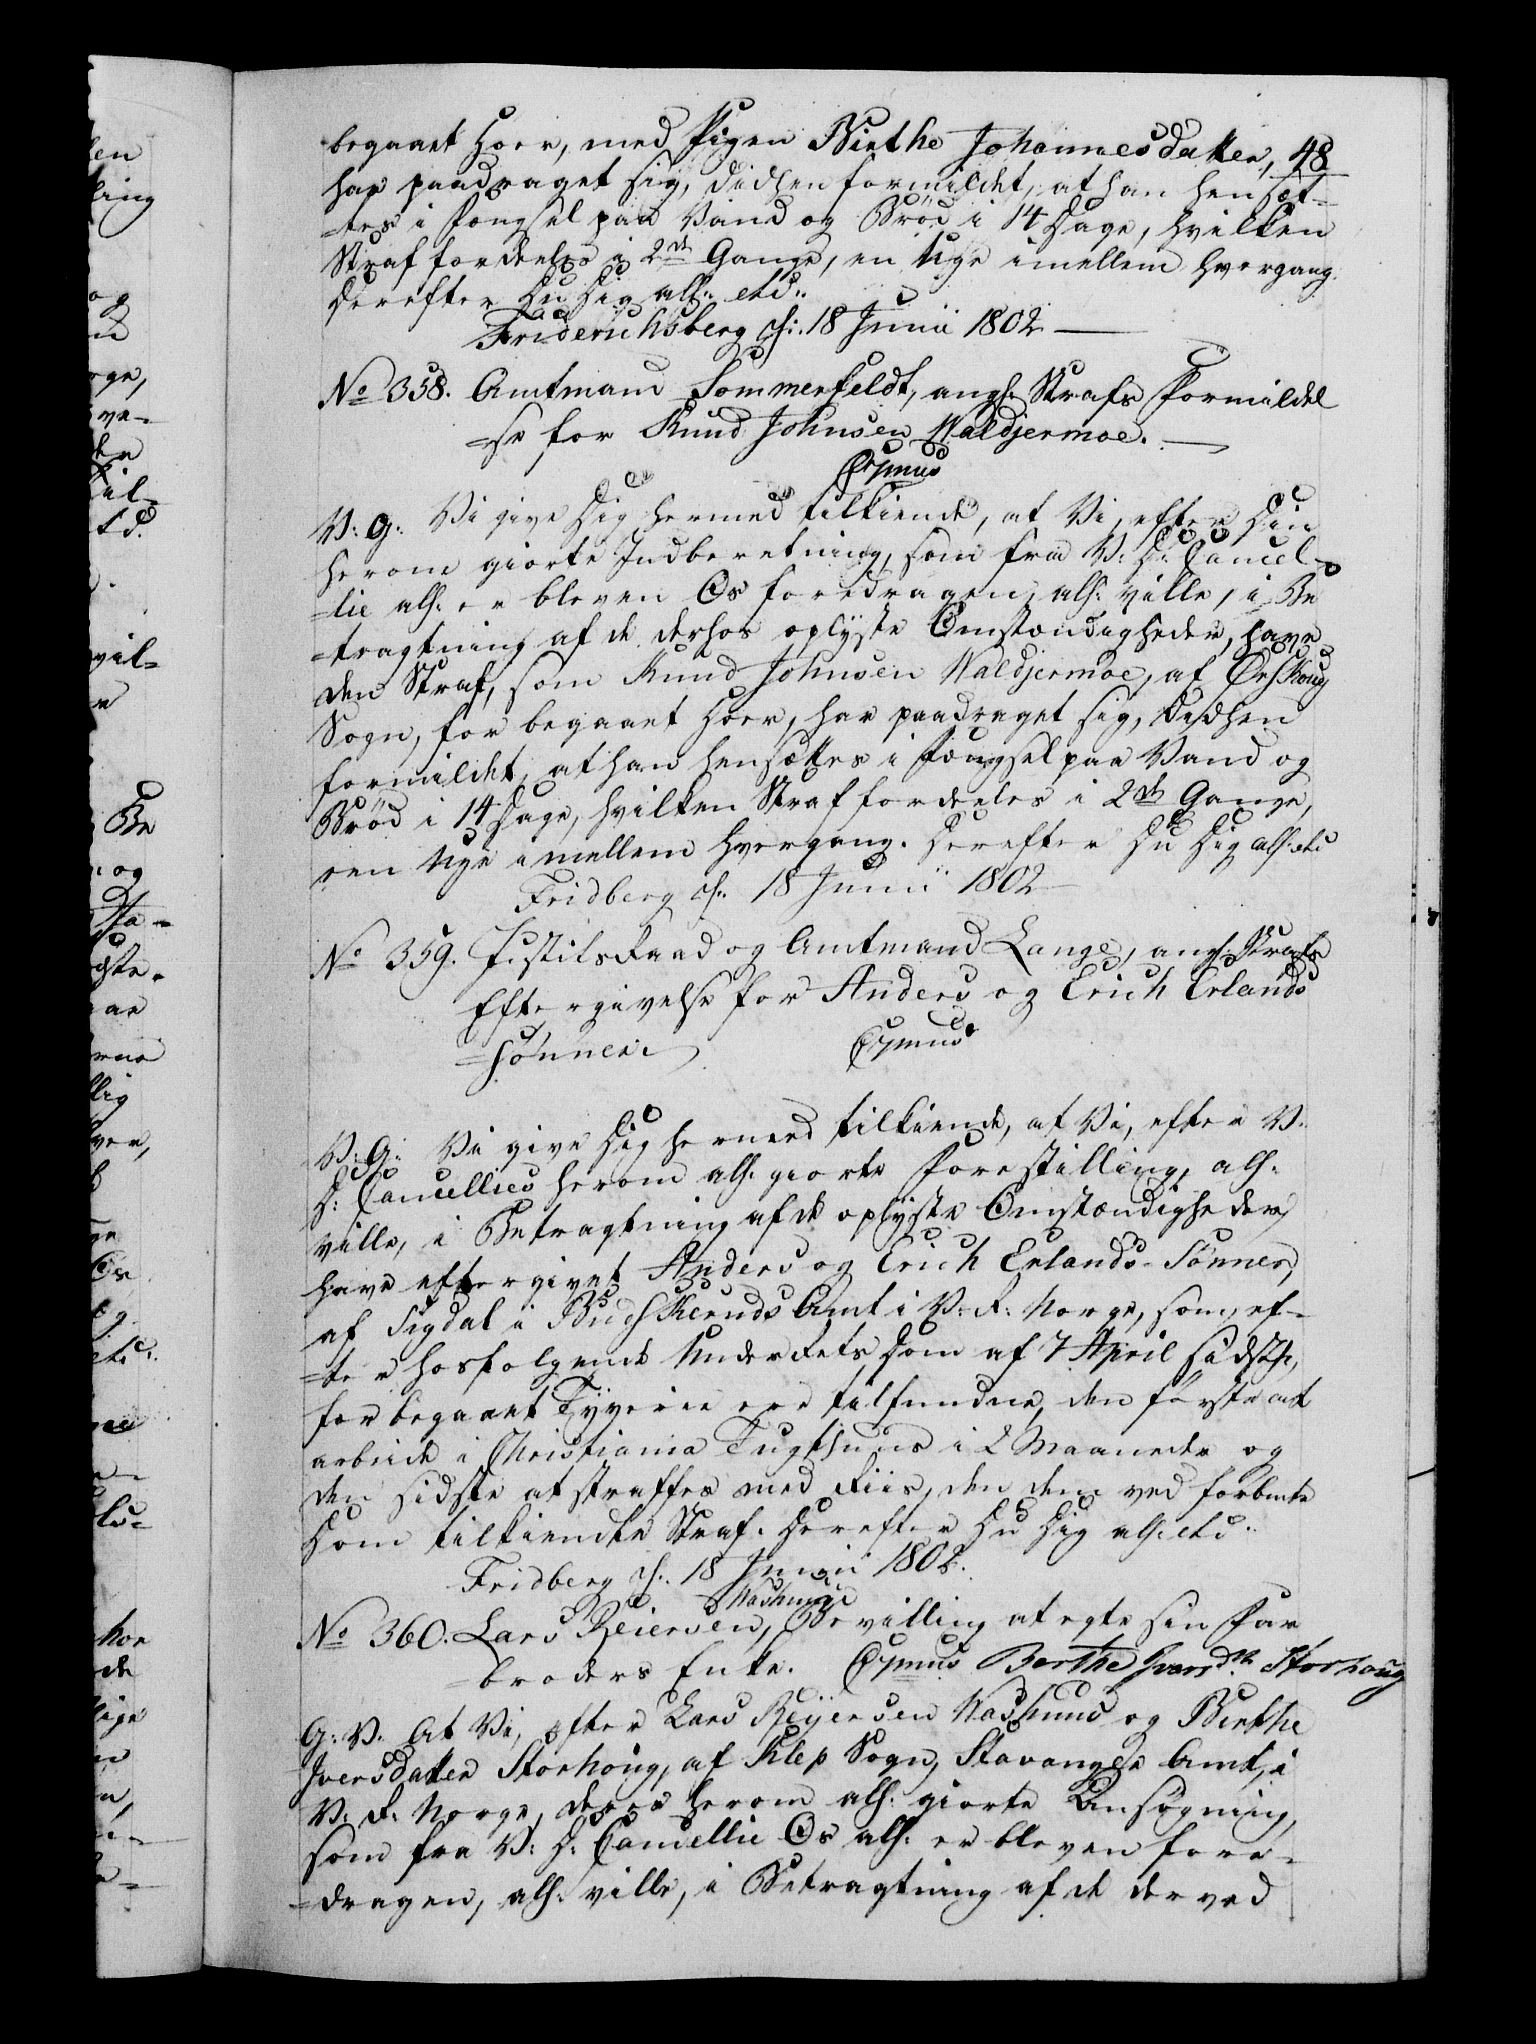 begaaet Hoer, med Pigen Birthe Johannesdatter, 48
har paadraget sig, didhen formildet, at han hensæt-
=tes i Fængsel paa Vand og Brød i 14 Dage, hvilken
Straf fordeeles i 2de Gange, en Uge imellem hvergang.
Derefter Du Dig alh: etc:
Friderichsberg d: 18 Junii 1802
No 358. Amtmand Sommerfeldt, angl: Strafs Formildel
=se for Knud Johnsen Waldjermoe.
Expmus
V: G: Vi give Dig hermed tilkiende, at Vi, efter Din
herom giorte Indberetning, som fra V: D: Cancel-
=lie alh: er bleven Os foredragen, alh: ville, i Be
=tragtning af de derhos oplyste Omstændigheder, have
den Straf, som Knud Johnsen Waldjermoe, af Ørschoug
Sogn, for begaaet Hoer, har paadraget sig, didhen
formildet, at han hensættes i Fængsel paa Vand og
Brød i 14 Dage, hvilken Straf fordeeles i 2de Gange,
een Uge imellem hvergang. Derefter Du Dig alh: etc
Fridberg d: 18 Junii 1802
No 359. Justitsraad og Amtmand Lange, angl: Strafs
Eftergivelse for Anders og Erich Erlands
=sønner.
Expmus
V: G: Vi give Dig hermed tilkiende, at Vi, efter V.
D: Cancellies herom alh: giorte Forestilling, alh:
ville, i Betragtning af de oplyste Omstændigheder,
have eftergivet Anders og Erich Erlands-Sønner,
af Sigdal i Budskeruds Amt i V: R: Norge, som, ef-
=ter hosfølgende Underrets Dom af 7 April sidstl:,
for begaaet Tyverie ere tilfundne, den første at
arbeide i Christiania Tugthuus i 2 Maaneder og
den sidste at straffes med Riis, den dem ved forbente
Dom tilkiendte Straf. Derefter Du Dig alh: etc:
Fridberg d: 18 Junii 1802.
Washuus
No 360. Lars Reiersen, Bevilling at egte sin Far
=broders Enke. Expmus Berthe Iversdtr Storhoug
G: V. At Vi, efter Lars Reijersen Washuus og Birthe
Iversdatter Storhoug, af Klep Sogn, Stavanger Amt, i
V. R: Norge, deres herom alh: giorte Ansøgning,
som fra V: D: Cancellie Os alh: er bleven fore-
=dragen, alh: ville, i Betragtning af de derved